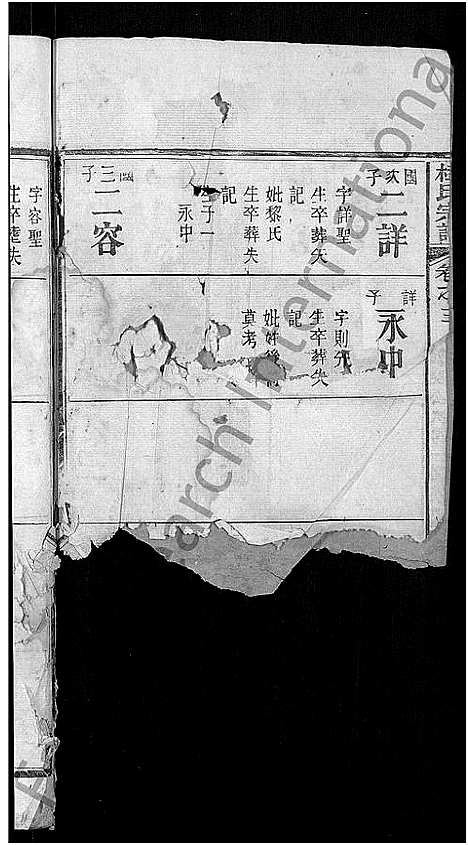 氏宗譜
卷之三
國次子
二詳
字詳聖
生卒葬失
記
妣黎氏
生卒葬失
記
生子一
永中
國三子
二容
詳子
永中
字則
生卒葬失
記
妣姓
莫考
字容聖
生卒葬失
arch International